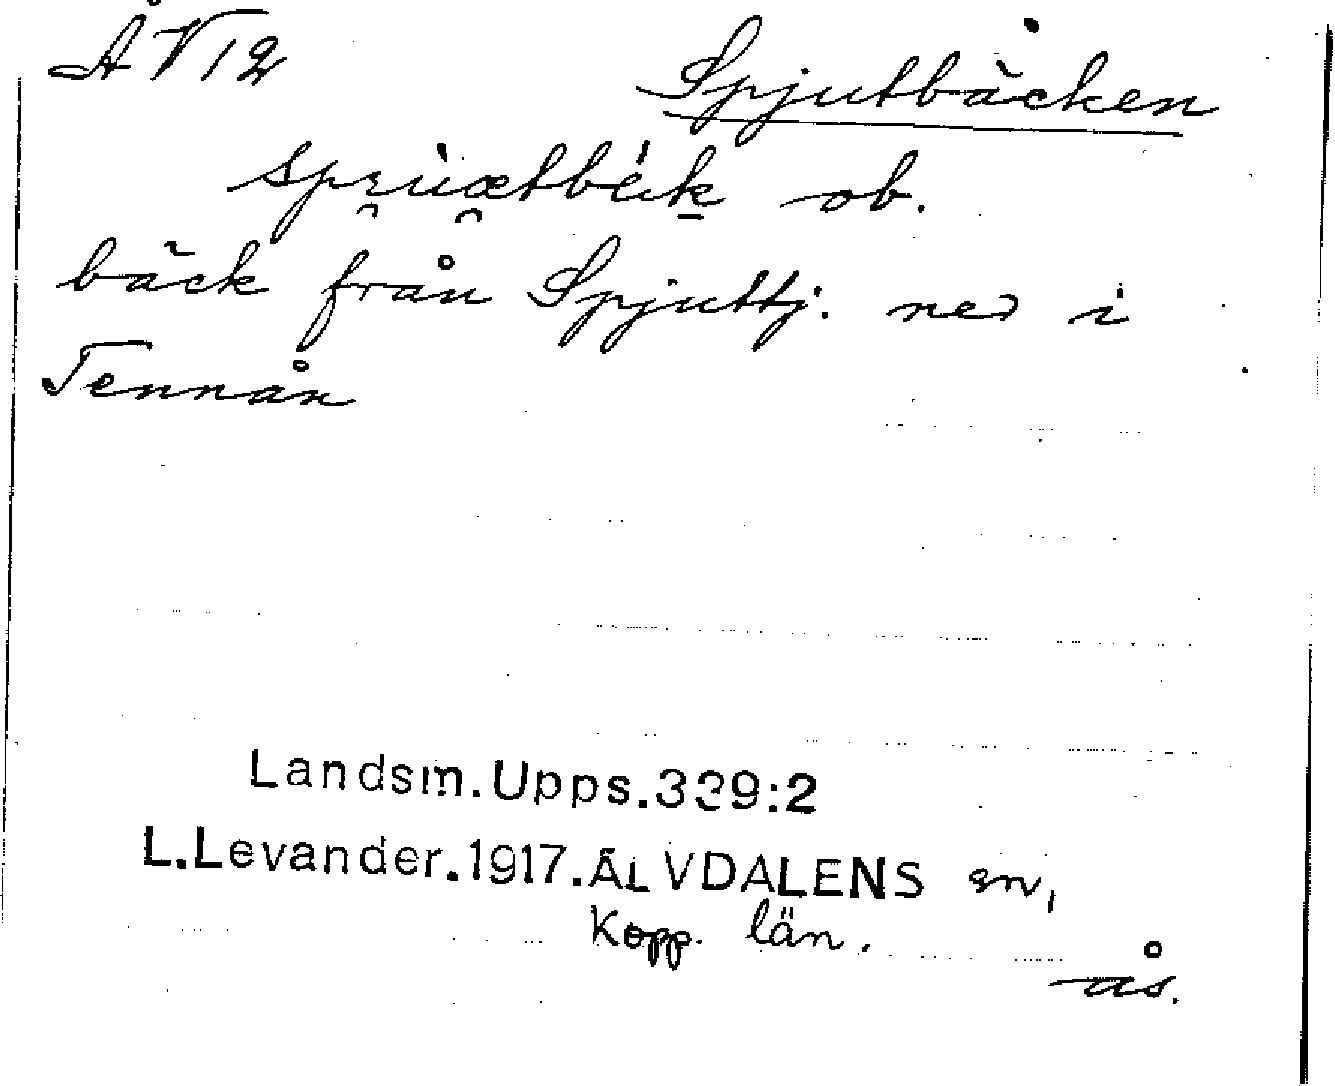 ÅV12
Spjutbäcken
ob.
bäck från Spjuttj. ned i
Tennån
Landsm.Upps.339:2
L.Levander.1917.ÄLVDALENS sn,
Kopp. län.
ås.